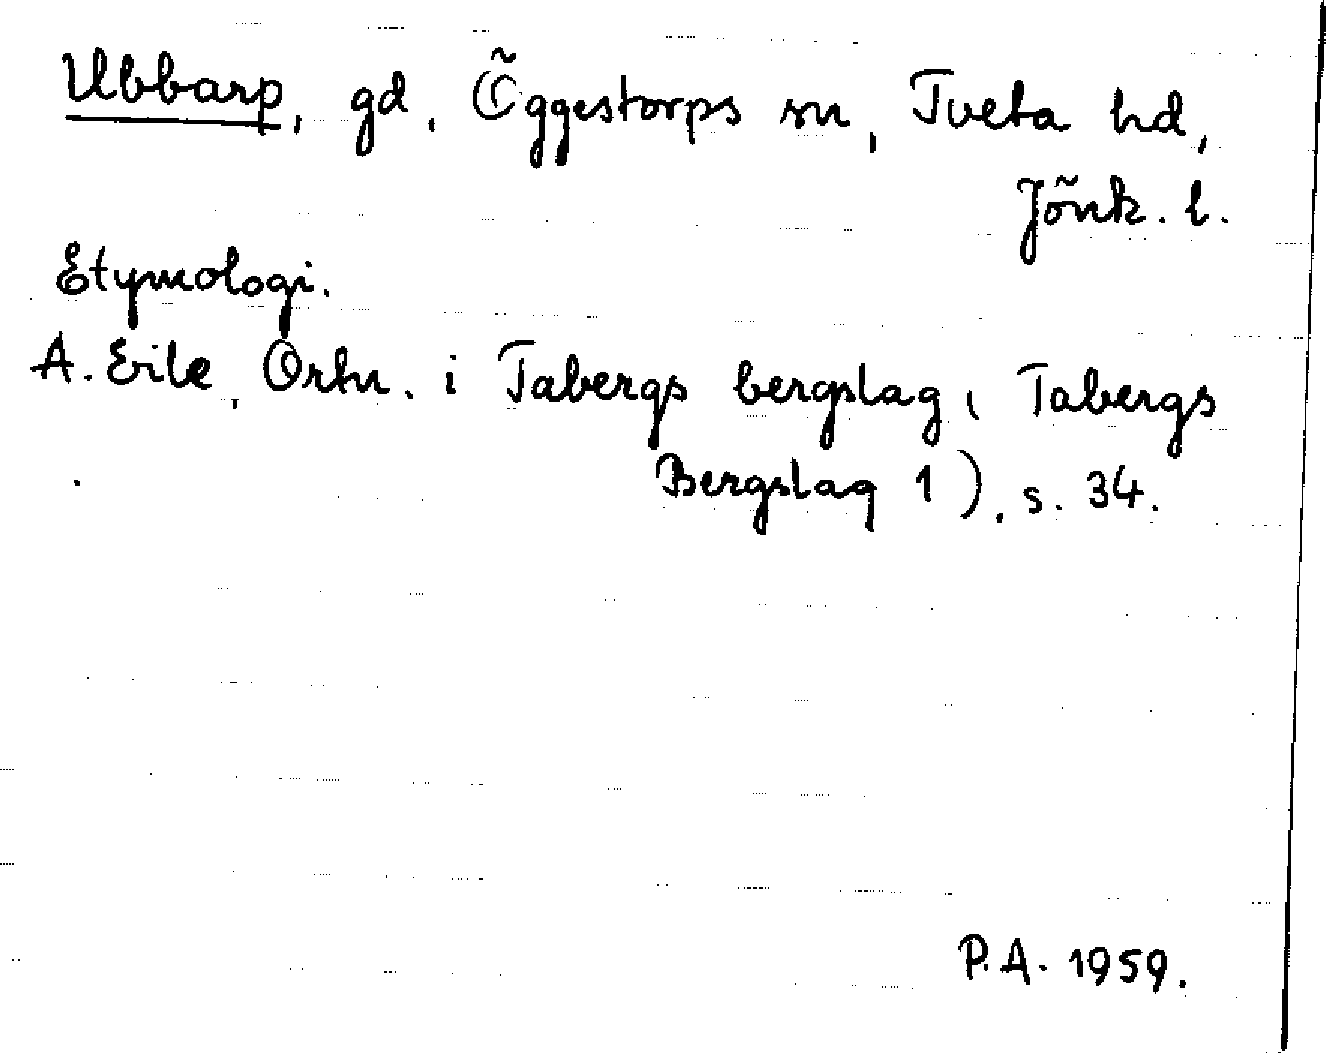 Ubbarp, gd, Öggestorps sn, Tveta hd,
Jönk. l.
Etymologi.
A. Ejle, Ortn. i Tabergs bergslag ( Tabergs
Bergslag 1), s. 34.
P.A. 1959.